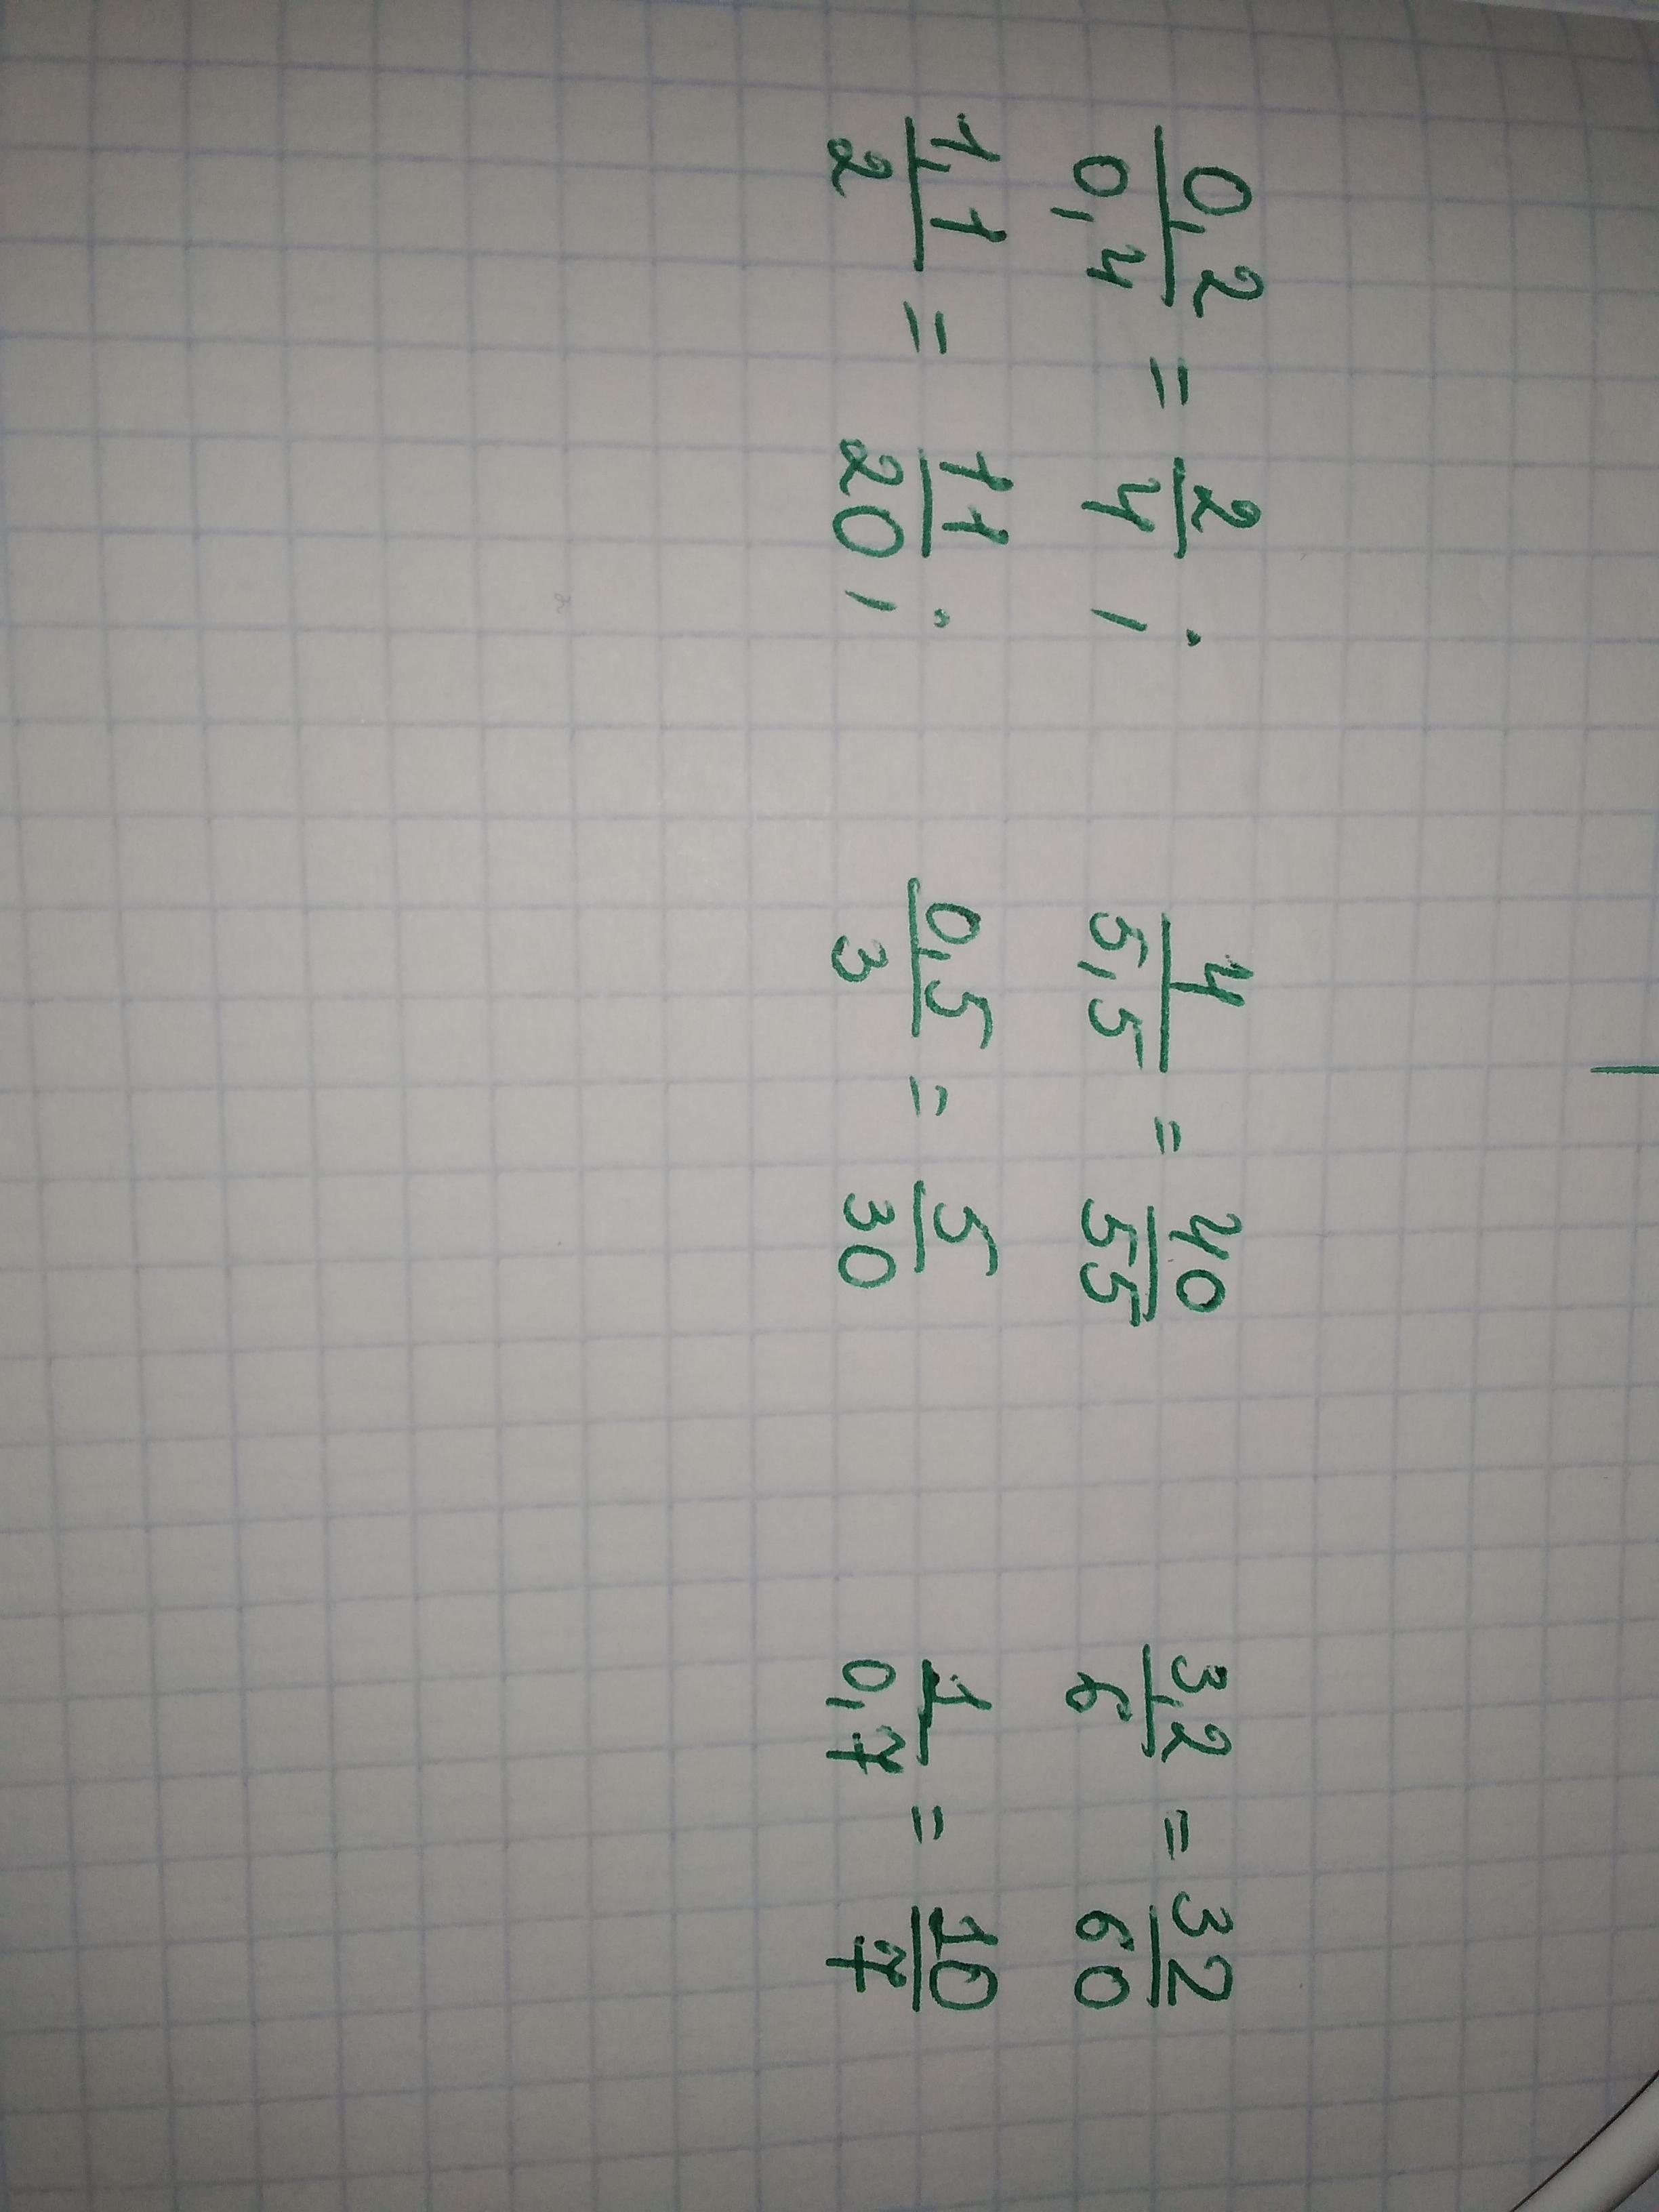 0,2/0,4 = 2/4 ; 4/5,5 = 40/55 3,2/6 = 32/60
1,1/2 = 11/20 ; 0,5/3 = 5/30 1/0,7 = 10/7